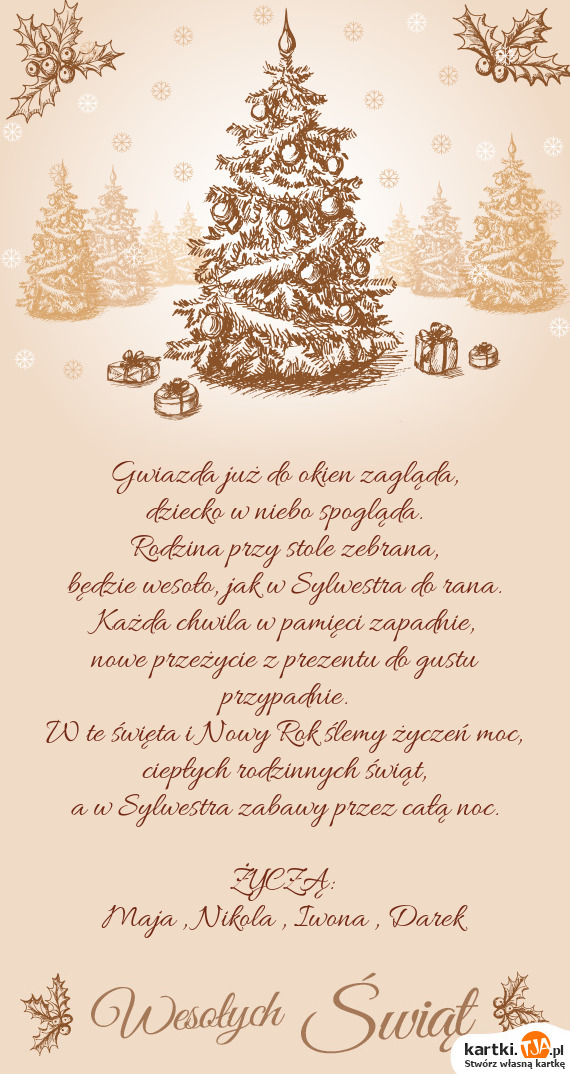 Gwiazda już do okien zagląda,
dziecko w niebo spogląda.
Rodzina przy stole zebrana,
będzie wesoło, jak w Sylwestra do rana.
Każda chwila w pamięci zapadnie,
nowe przeżycie z prezentu do gustu
przypadnie.
W te święta i Nowy Rok ślemy życzeń moc,
ciepłych rodzinnych świąt,
a w Sylwestra zabawy przez całą noc.
ŻYCZĄ:
Maja , Nikola , Iwona , Darek
Wesołych Świąt
kartki.TJA.pl
Stwórz własną kartkę